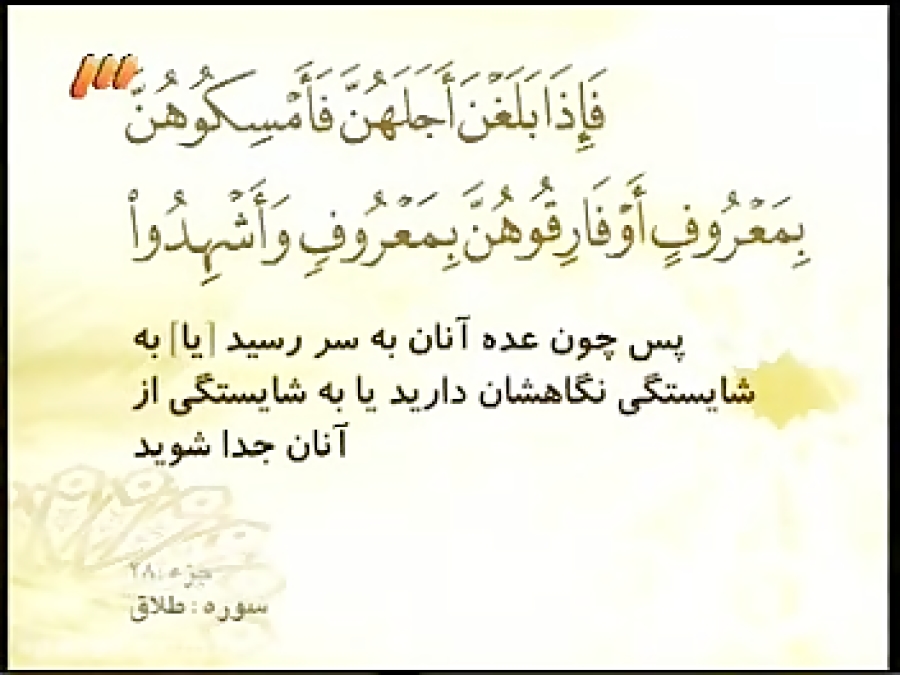 فَإِذَا بَلَغْنَ أَجَلَهُنَّ فَأَمْسِكُوهُنَّ
بِمَعْرُوفٍ أَوْ فَارِقُوهُنَّ بِمَعْرُوفٍ وَأَشْهِدُواْ
پس چون عده آنان به سر رسید [یا] به
شایستگی نگاهشان دارید یا به شایستگی از
آنان جدا شوید
جزء:۲۸
سوره: طلاق